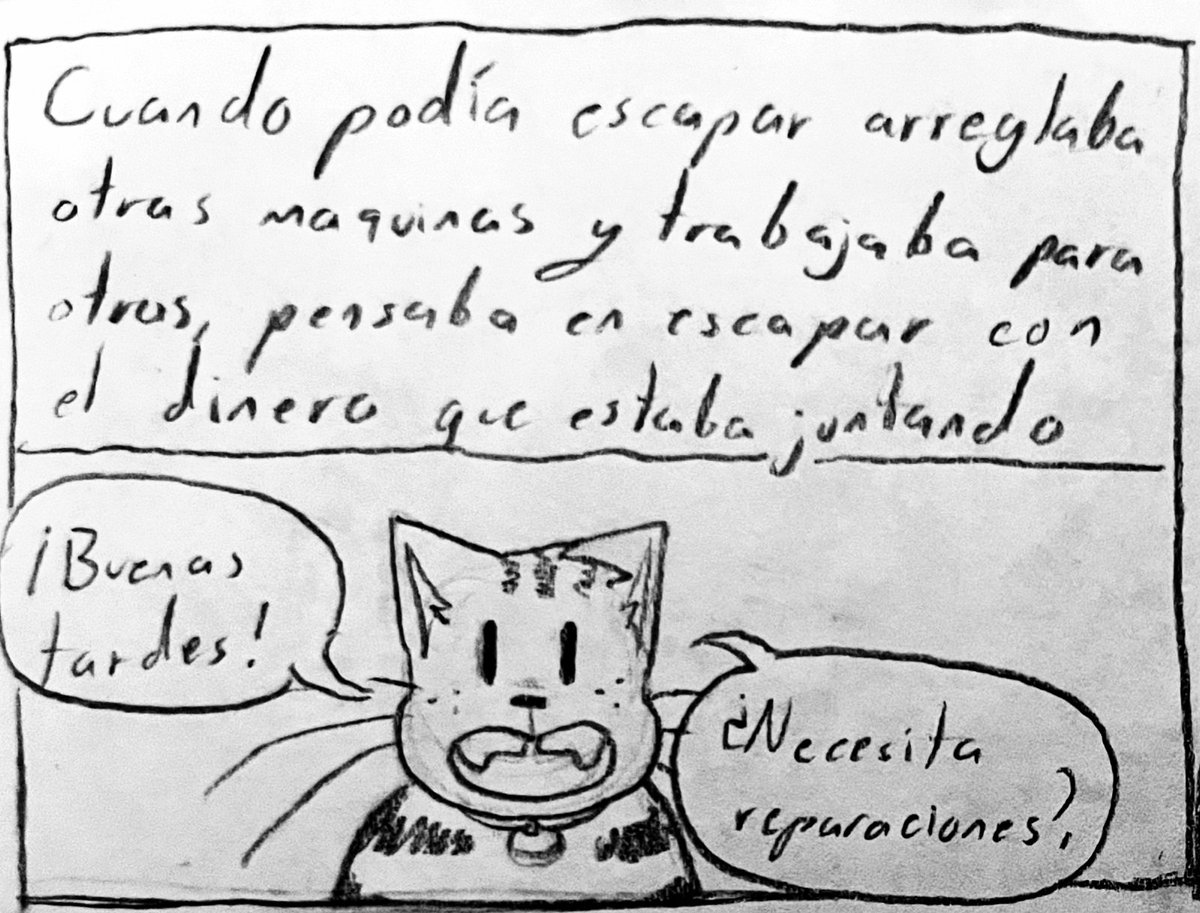 Cuando podía escapar arreglaba
otras maquinas y trabajaba para
otros, pensaba en escapar con
el dinero que estaba juntando
¡Buenas
tardes!
¿Necesita
reparaciones?